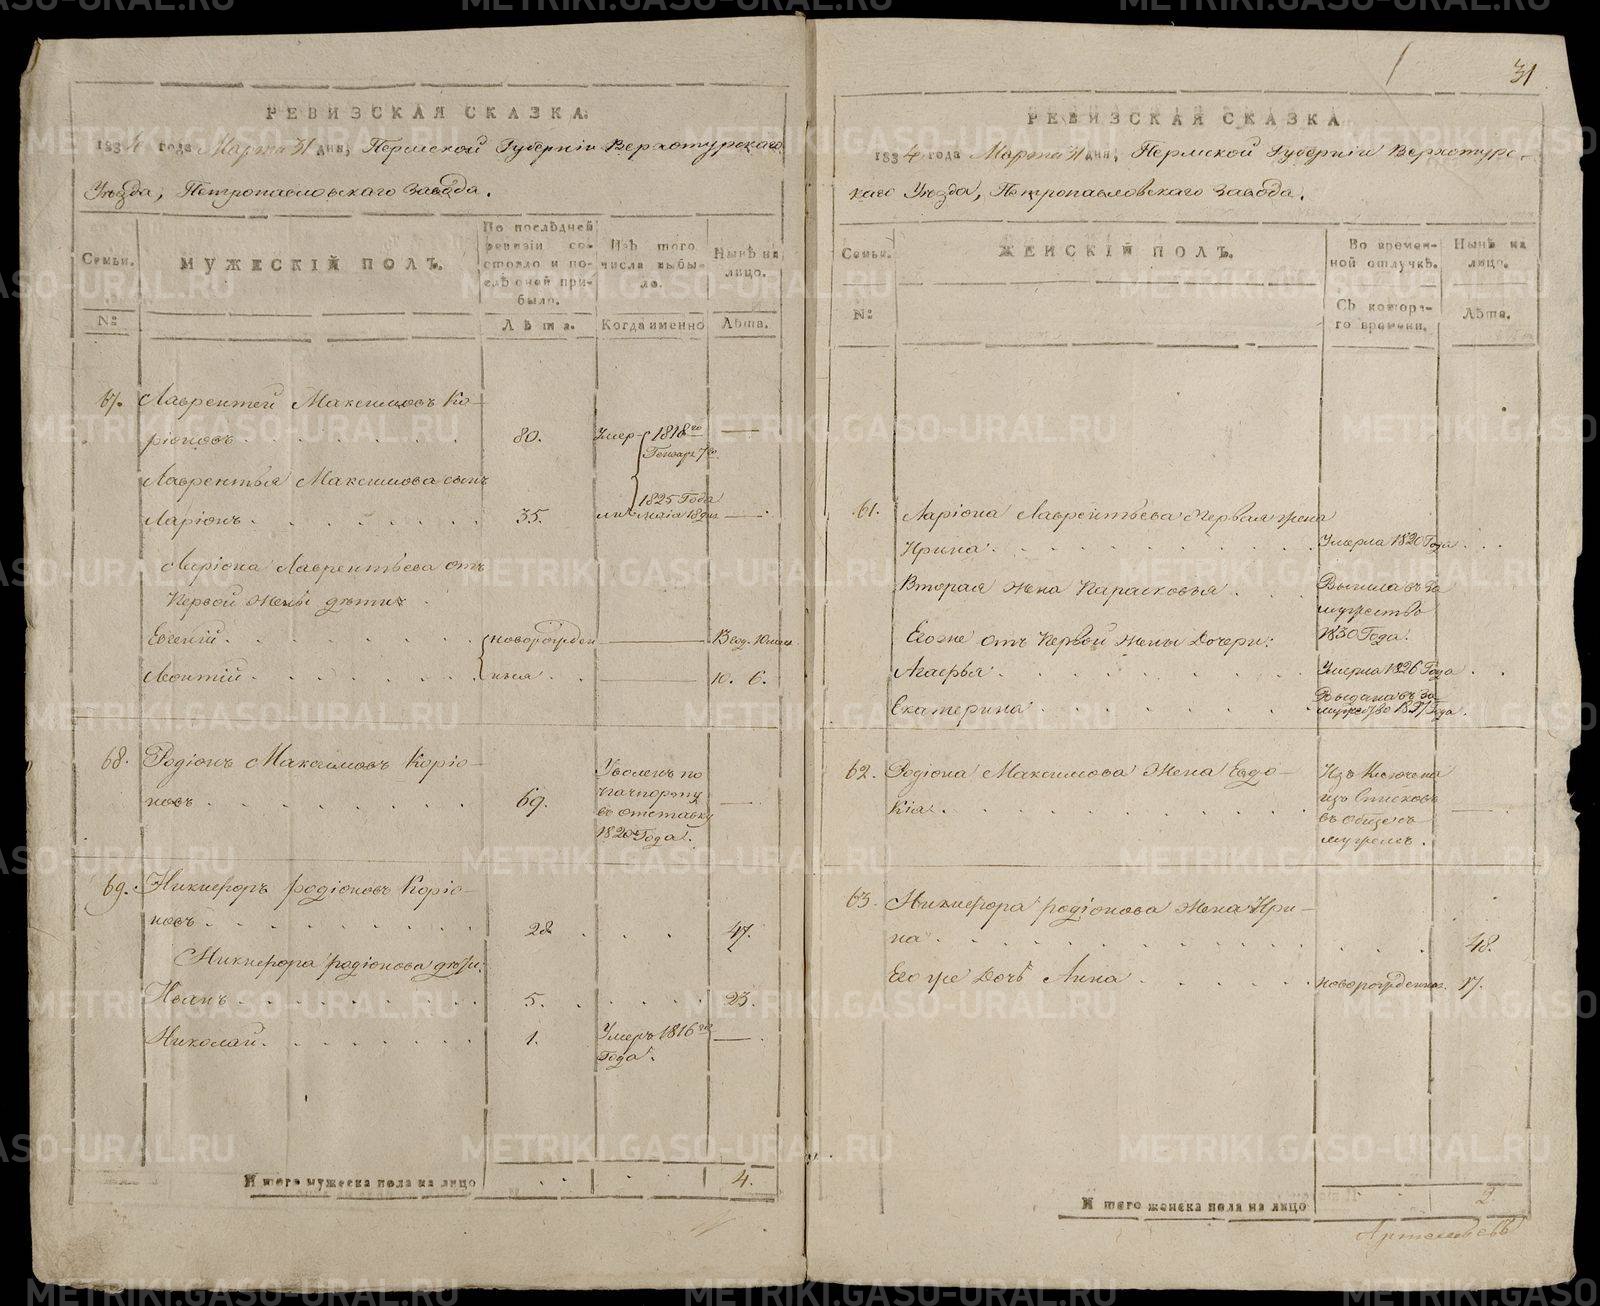 РЕВИЗСКАЯ СКАЗКА.
1834 года Марта 31 дня, Пермской Губернiи Верхотурскаго
Уѣзда, Петропавловскаго Завода.
Семьи.
МУЖЕСКІЙ ПОЛЪ.
По послѣдней ревизіи состояло и послѣ оной прибыло.
Изъ того числа выбыло.
Нынѣ на лицо.
№:
Лѣта.
Когда именно
Лѣта.
67. Лаврентей Максимовъ Ко-
ріоновъ 80. Умер 1818го Генваря 7го
Лаврентья Максимова сынъ
Ларіонъ 35. 1825 Года маія 18 дня
Ларіона Лаврентьева отъ
Первой жены дѣти
Евгеній новорожден 13 год. 10 мес.
Леонтій ныя 10. 6.
68. Родіонъ Максимовъ Коріо-
новъ 69. Уволенъ по пачпорту въ отставку 1820 Года.
69. Никифоръ родіоновъ Коріо-
новъ 28. 47.
Никифора родіонова дѣти:
Иванъ 5. 23.
Николай 1. Умеръ 1816го Года.
И того мужеска пола на лицо 4.
31
РЕВИЗСКАЯ СКАЗКА
1834 года Марта 31 дня, Пермской Губерніи Верхотурс-
каго Уѣзда, Петропавловскаго Завода.
Семьи.
ЖЕНСКІЙ ПОЛЪ.
Во временной отлучкѣ.
Нынѣ на лицо.
№:
Съ котораго времени.
Лѣта.
61. Ларіона Лаврентьева первая жена
Ирина Умерла 1820 Года
Вторая жена Парасковья Вышла въ замужество
Его же отъ Первой жены Дочери: 1830 Года.
Агафья Умерла 1826 Года
Екатерина Выдана въ замужество 1831 Года.
62. Родіона Максимова Жена Евдо-
кія Изключена изъ Списковъ въ обще съ мужемъ.
63. Никифора родіонова Жена Ири-
на 48.
Его же Дочь Анна новорожденная 17.
И того женска пола на лицо 2.
METRIKI.GASO-URAL.RU